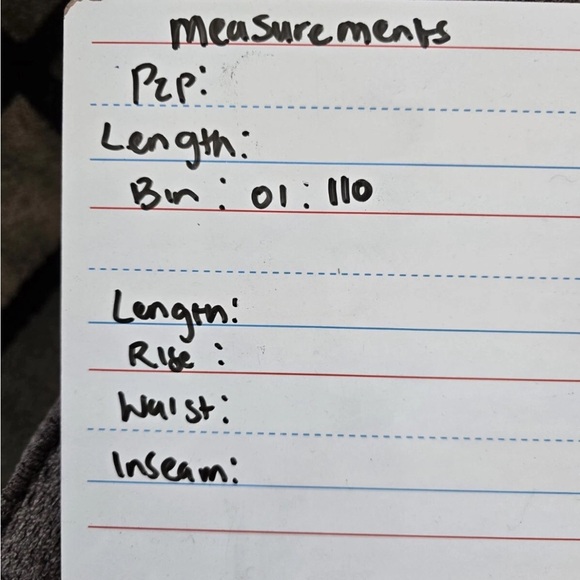 measurements
P2P:
Length:
Bin: 01: 110
Length:
Rise:
Waist:
Inseam: